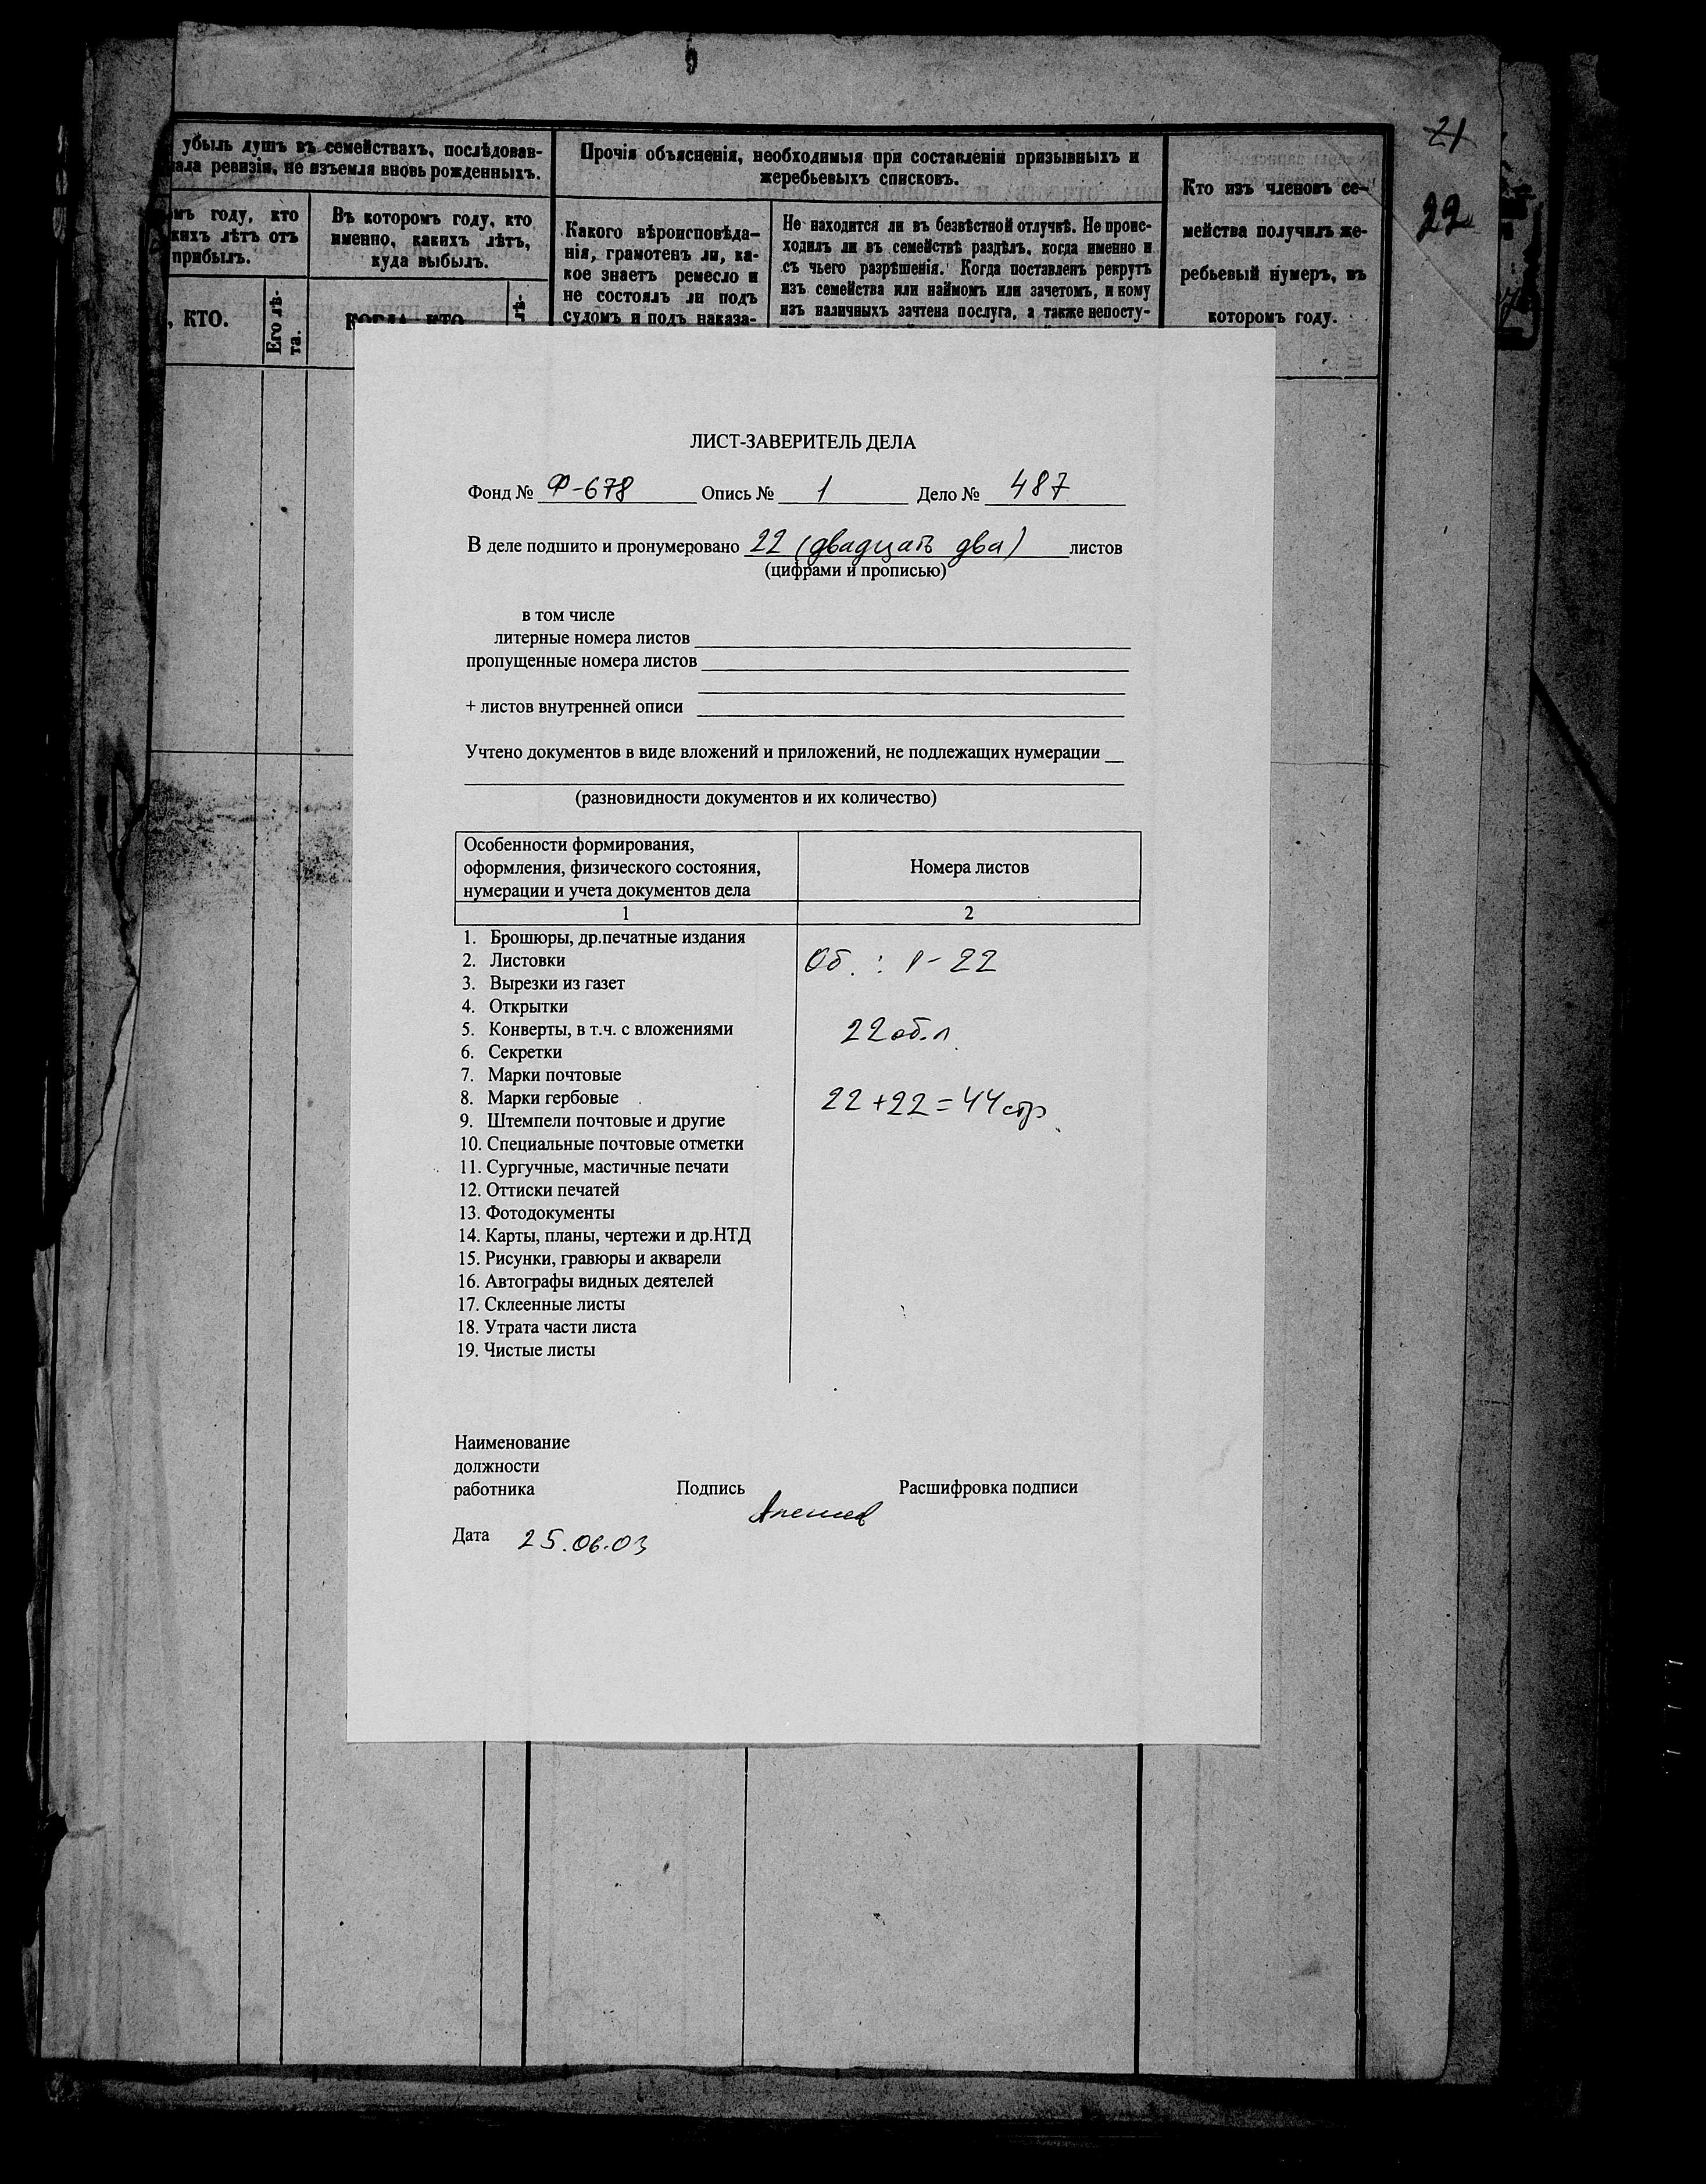 21
22
убыль душъ въ семействахъ, послѣдовав-
ревизіи, не изъемля вновь рожденныхъ.
году, кто
лѣтъ отъ
прибылъ.
КТО.
Его лѣ-
та.
Въ которомъ году, кто
именно, какихъ лѣтъ,
куда выбылъ.
Прочія объясненія, необходимыя при составленіи призывныхъ и
жеребьевыхъ списковъ.
Какого вѣроисповѣда-
нія, грамотенъ ли, ка-
кое знаетъ ремесло и
не состоялъ ли подъ
судомъ и подъ наказа-
Не находится ли въ безвѣстной отлучкѣ. Не проис-
ходилъ ли въ семействѣ раздѣлъ, когда именно и
съ чьего разрѣшенія. Когда поставленъ рекрутъ
изъ семейства или наймомъ или зачетомъ, и кому
изъ наличныхъ зачтена послуга, а также непосту-
Кто изъ членовъ се-
мейства получилъ же-
ребьевый нумеръ, въ
которомъ году.
ЛИСТ-ЗАВЕРИТЕЛЬ ДЕЛА
Фонд № Ф-678 Опись № 1 Дело № 487
В деле подшито и пронумеровано 22 (двадцать два) листов
(цифрами и прописью)
в том числе
литерные номера листов
пропущенные номера листов
+ листов внутренней описи
Учтено документов в виде вложений и приложений, не подлежащих нумерации
(разновидности документов и их количество)
Особенности формирования,
оформления, физического состояния,
нумерации и учета документов дела
Номера листов
1 2
1. Брошюры, др.печатные издания
2. Листовки
3. Вырезки из газет
4. Открытки
5. Конверты, в т.ч. с вложениями
6. Секретки
7. Марки почтовые
8. Марки гербовые
9. Штемпели почтовые и другие
10. Специальные почтовые отметки
11. Сургучные, мастичные печати
12. Оттиски печатей
13. Фотодокументы
14. Карты, планы, чертежи и др.НТД
15. Рисунки, гравюры и акварели
16. Автографы видных деятелей
17. Склеенные листы
18. Утрата части листа
19. Чистые листы
Об. : 1-22
22 об.л
22+22=44 стр
Наименование
должности
работника
Подпись
Расшифровка подписи
Дата 25.06.03